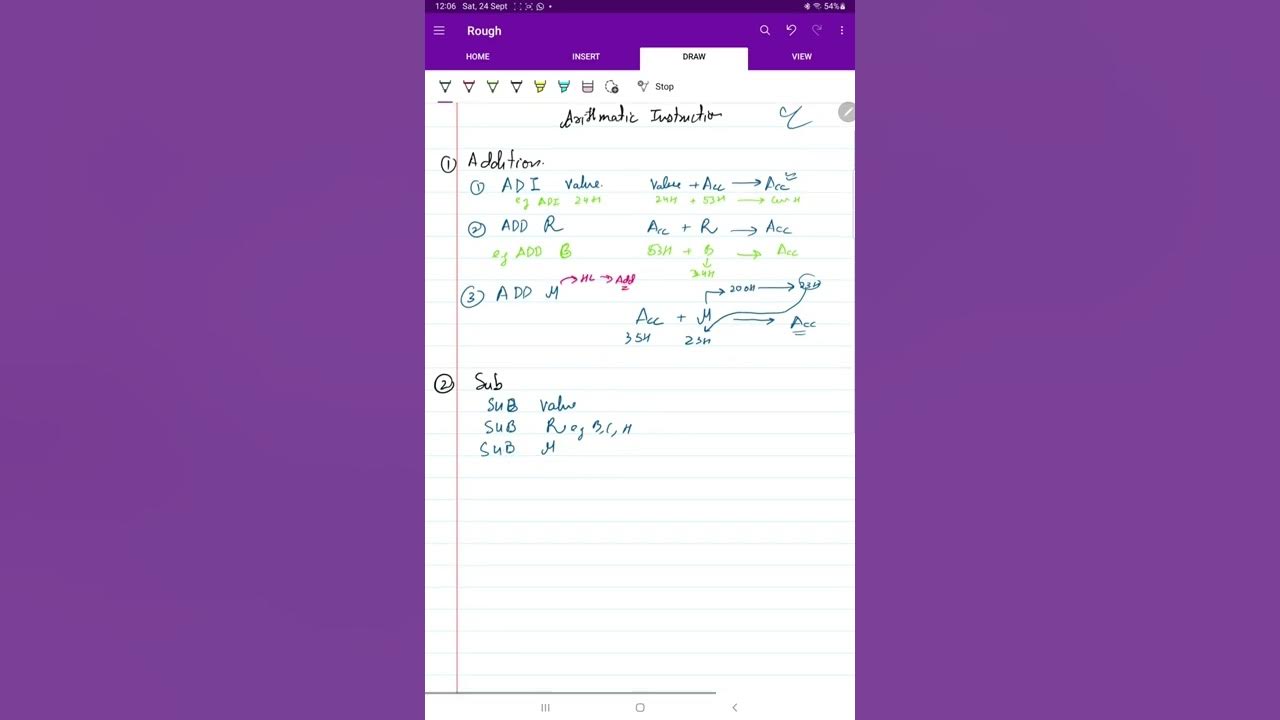 12:06 Sat, 24 Sept 54%
Rough
HOME INSERT DRAW VIEW
Stop
Arithmatic Instruction
① Addition.
① ADI Value. Value + Acc → Acc
eg ADI 24H 24H + 53H →
② ADD R Acc + R → Acc
eg ADD B 53H + B → Acc
34H
→ HL → Add
③ ADD M → 200H → 23H
Acc + M → Acc
35H 23H
② Sub
SUB Value
SUB R eg B, C, H
SUB M